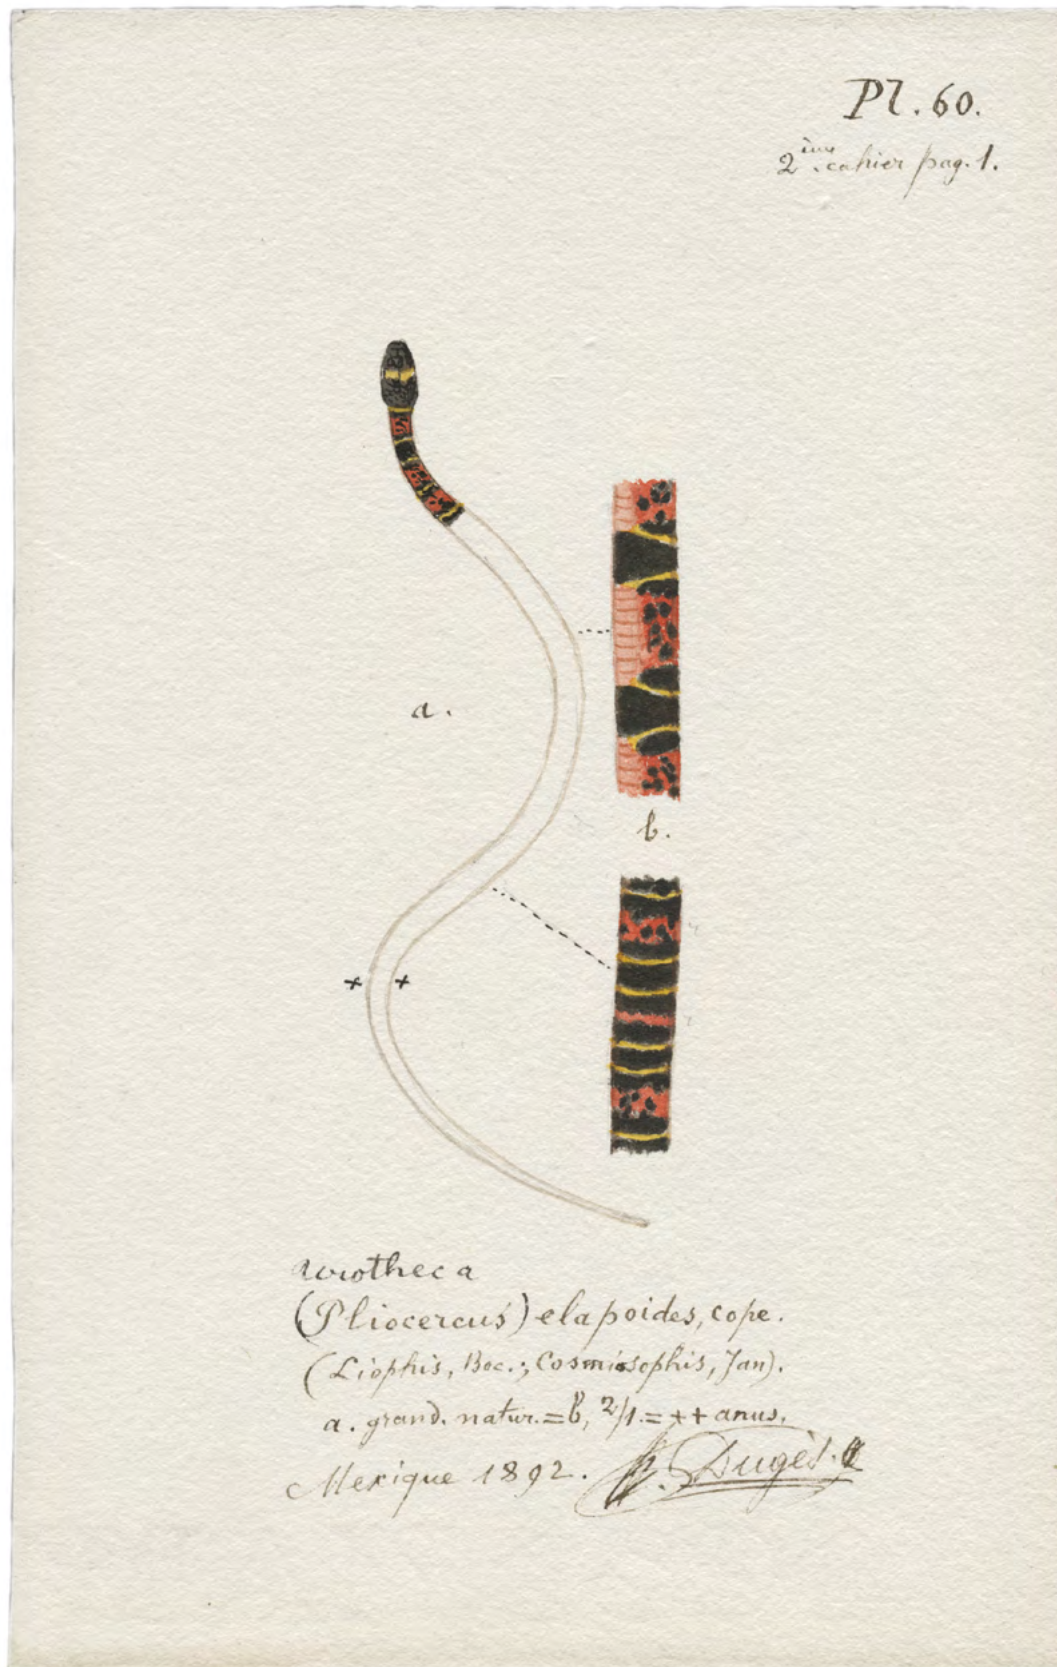 Pl. 60.
2ème. cahier pag. 1.
a.
b.
urotheca
(Pliocercus) elapoides, cope.
(Liophis, Boc.; Cosmiosophis, Jan).
a. grand. natur. = b, 2/1. = ++ anus.
Mexique 1892. A. Dugès.